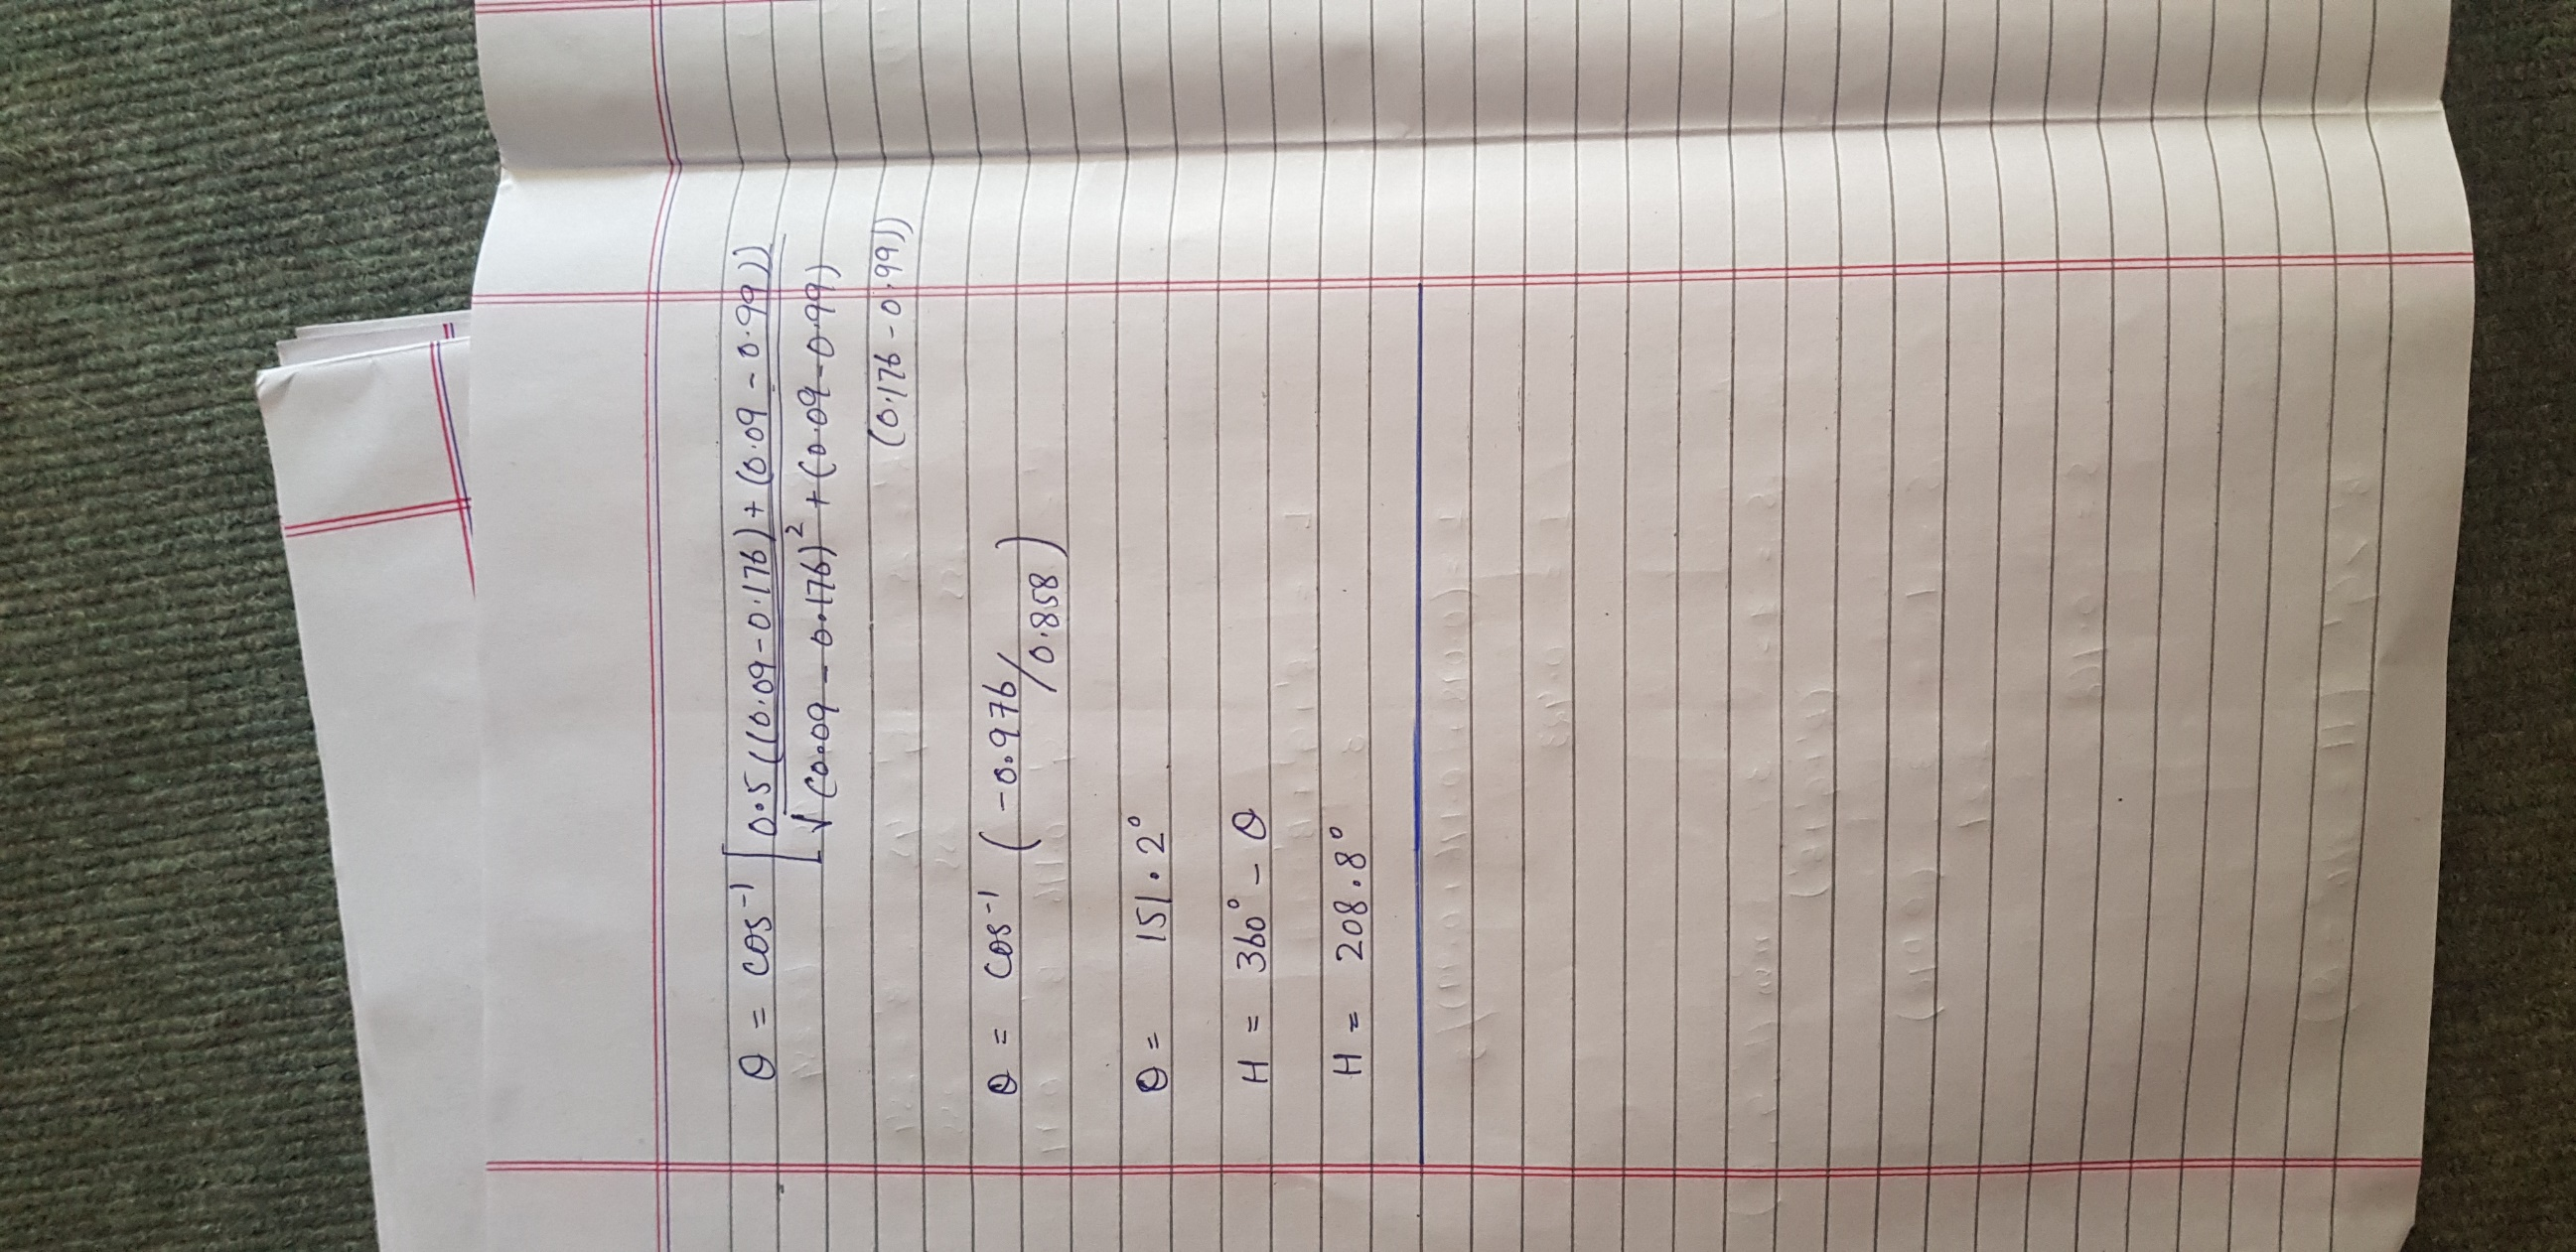 θ = cos⁻¹ [0.5((0.09 - 0.176) + (0.09 - 0.99))
√(0.09 - 0.176)² + (0.09 - 0.99)
(0.176 - 0.99))
θ = cos⁻¹ (-0.976/
0.858)
θ = 151.2°
H = 360° - θ
H = 208.8°